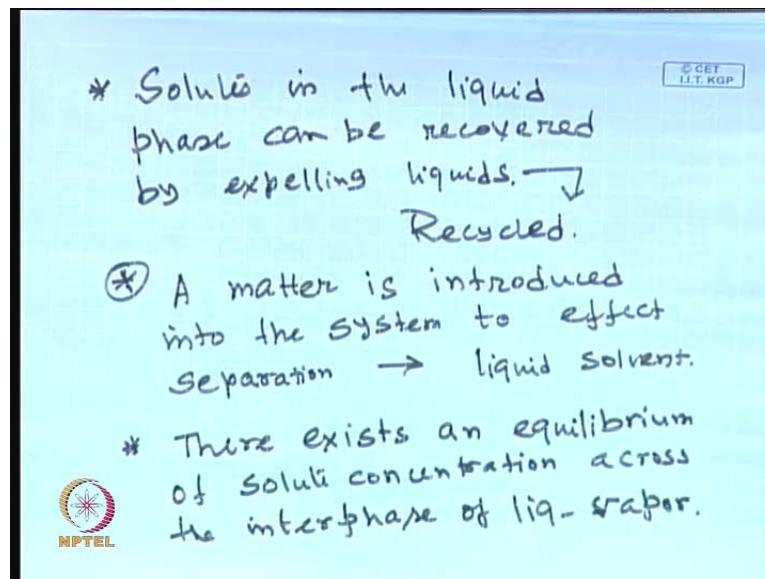 © CET
I.I.T. KGP
* Solute in the liquid
phase can be recovered
by expelling liquids. →
Recycled.
* A matter is introduced
into the system to effect
separation → liquid solvent.
* There exists an equilibrium
of solute concentration across
the interphase of liq-vapor.
NPTEL